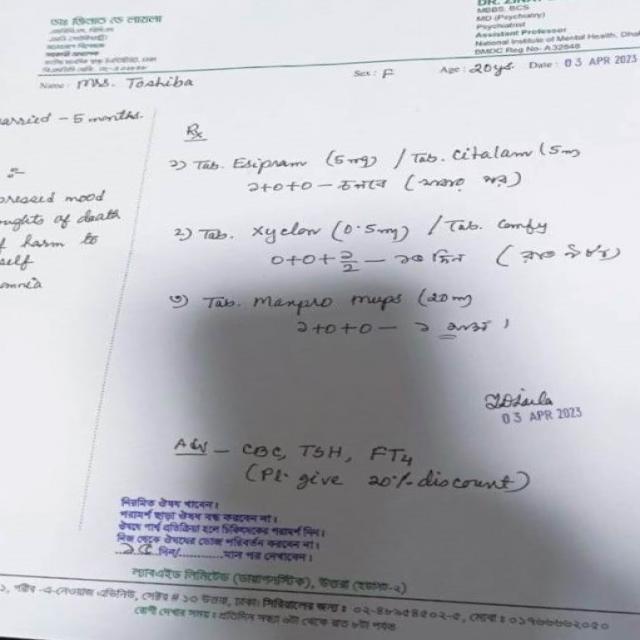 ডাঃ জিনাত ডে লায়লা
DR. ZINAT
MBBS, BCS
MD (Psychiatry)
Psychiatrist
Assistant Professor
National Institute of Mental Health, Dhak
BMDC Reg No- A 32648
Name: Mrs. Toshiba Sex: F Age: 20ys Date: 03 APR 2023
arried - 5 months.
Rx
১) Tab. Esipram (5mg) / Tab. Citalam (5m
১+০+০ - চলবে
:-
pressed mood
oughts of death
f harm to
self
omnia
২) Tab. Xyclon (0.5mg) / Tab. Comfy
০+০+ ১/২ - ১৫ দিন
৩) Tab. Maxpro mups (20m
১+০+০ - ১ মাস।
03 APR 2023
Adv - CBC, TSH, FT4
(Pl. give 20% discount)
নিয়মিত ঔষধ খাবেন।
পরামর্শ ছাড়া ঔষধ বন্ধ করবেন না।
ঔষধে পার্শ্ব প্রতিক্রিয়া হলে চিকিৎসকের পরামর্শ নিন।
নিজ থেকে ঔষধের ডোজ পরিবর্তন করবেন না।
১৫ দিন/..........মাস পর দেখাবেন।
ল্যাবএইড লিমিটেড (ডায়াগনস্টিক), উত্তরা (ইউনিট-২)
গরীব-এ-নেওয়াজ এভিনিউ, সেক্টর # ১৩ উত্তরা, ঢাকা। সিরিয়ালের জন্য: ০২-৪৮৯৫৪৫০২-৫, মোবা: ০১৭৬৬৬৬২০৫০
রোগী দেখার সময়: প্রতিদিন সন্ধ্যা ৬টা থেকে রাত ৮টা পর্যন্ত